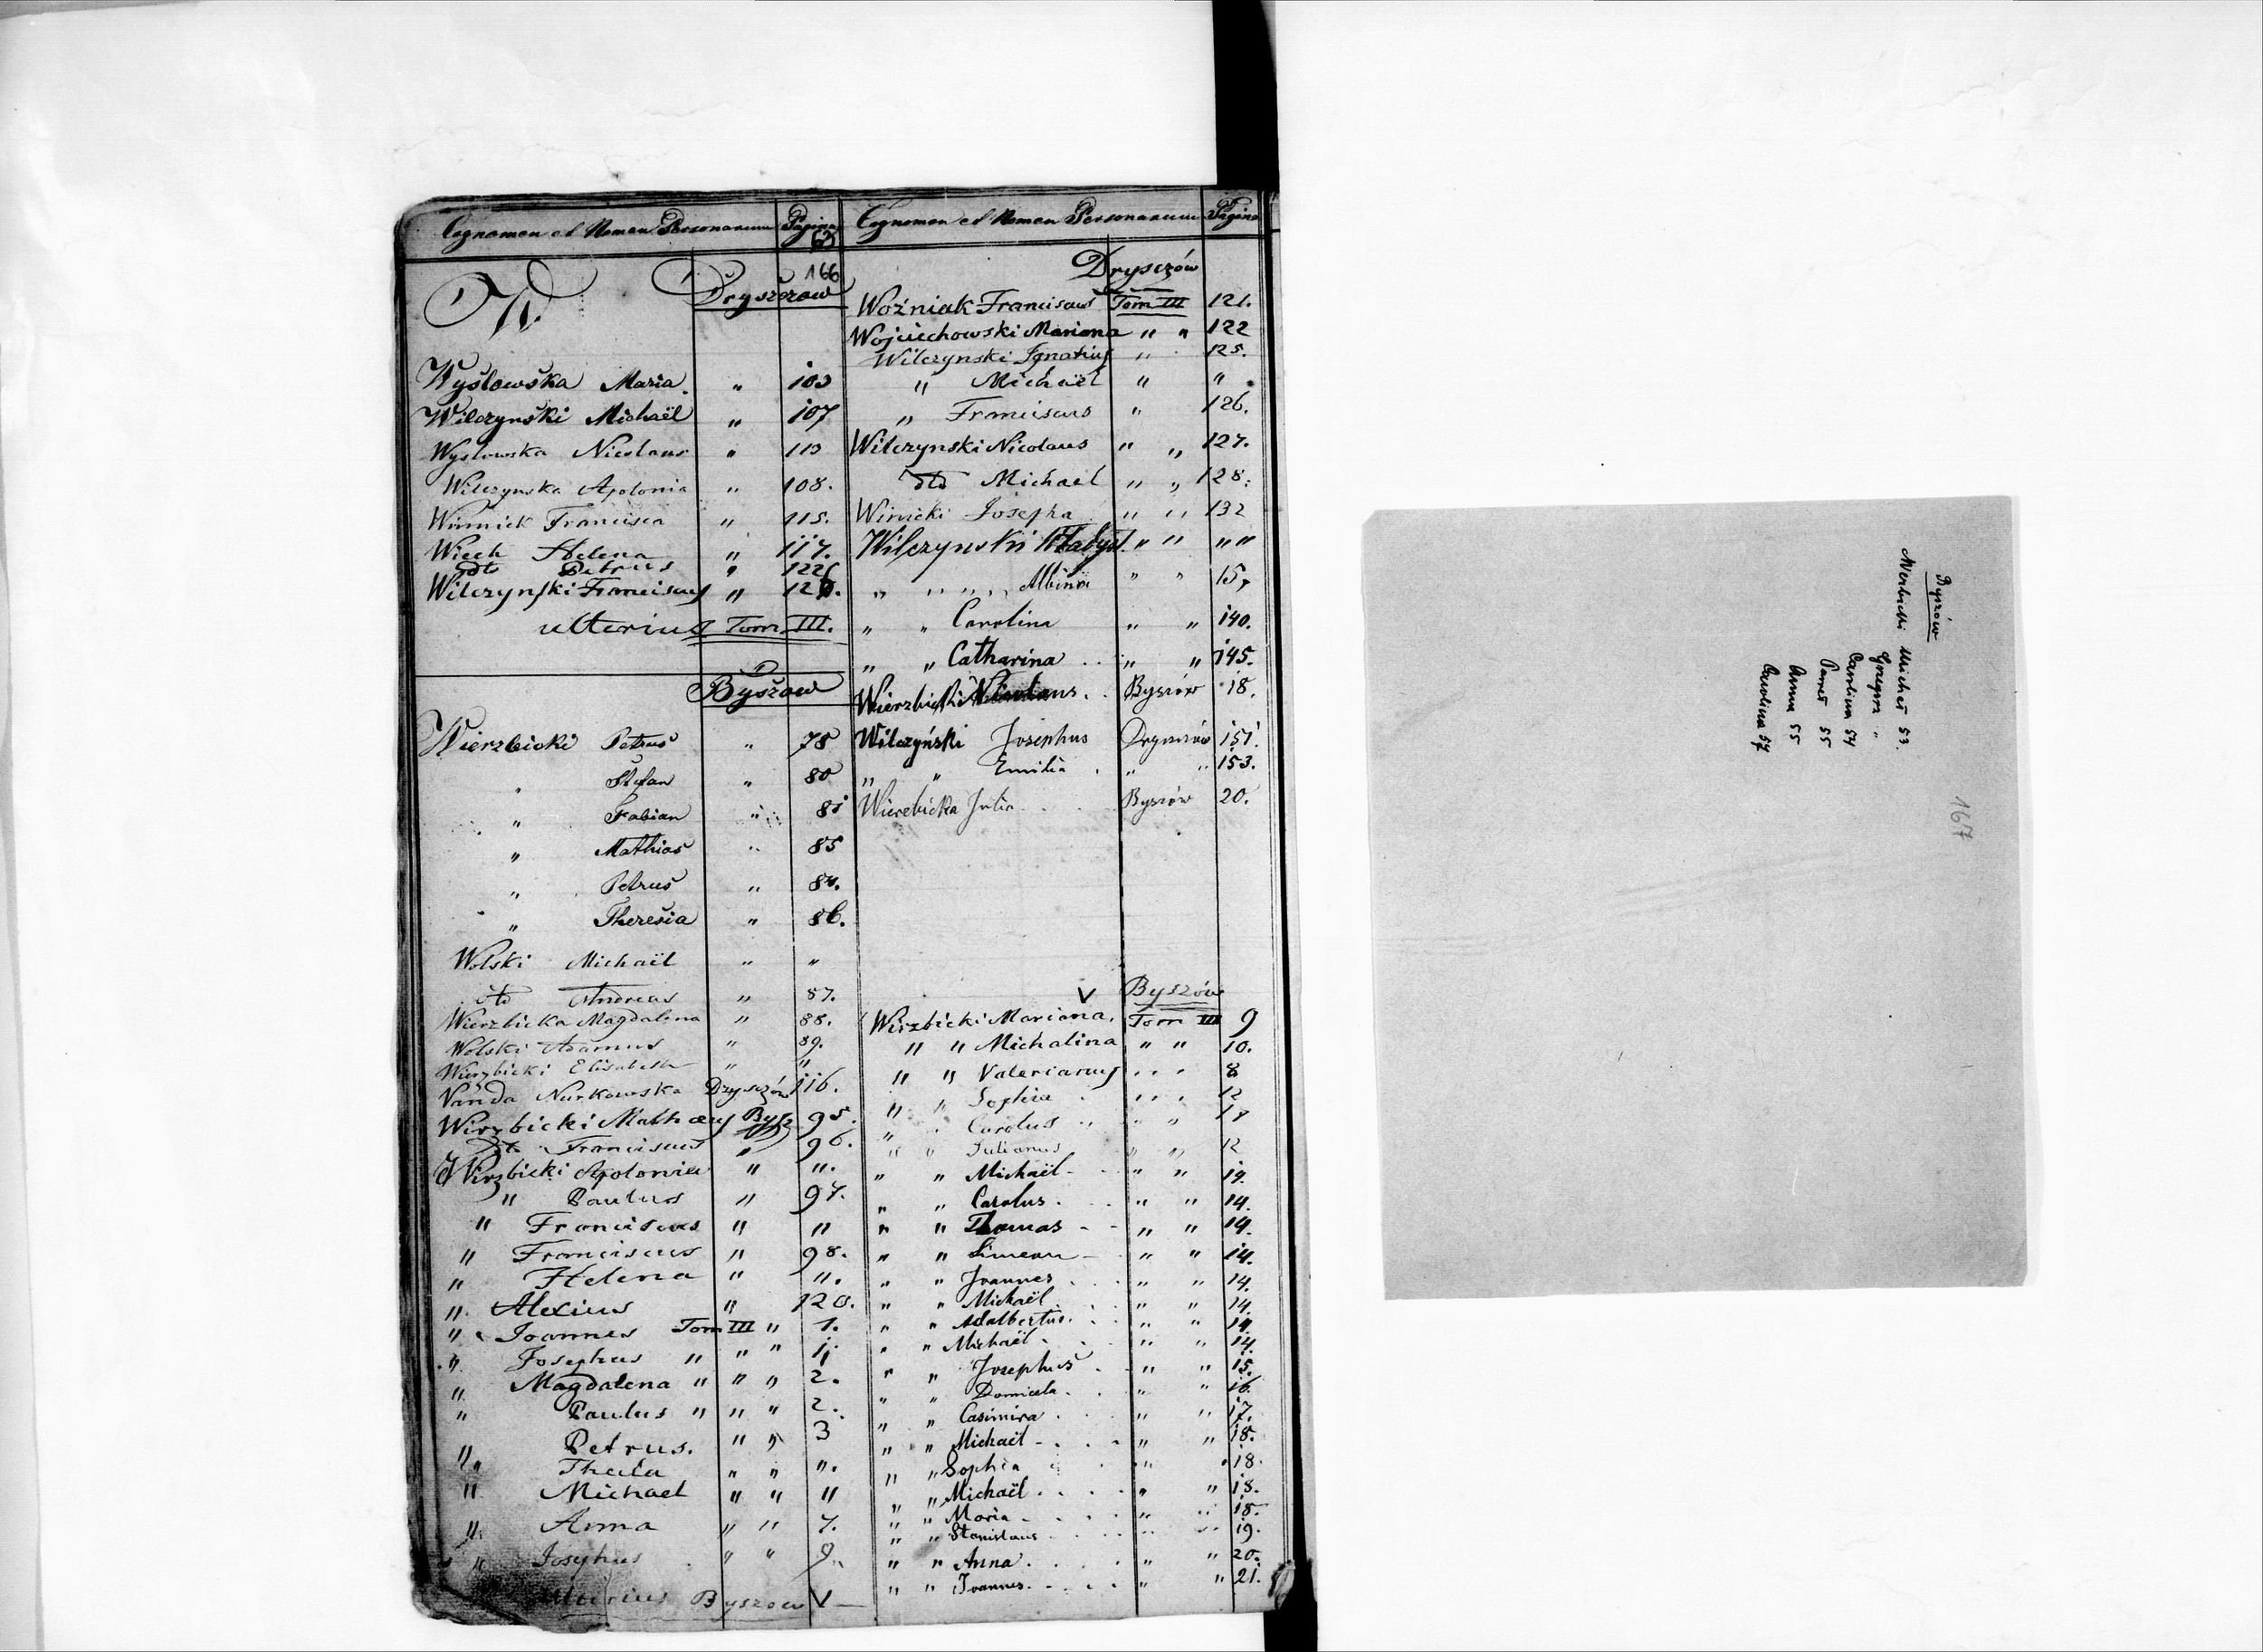 Cognomen et Nomen Personarum Pagina
63
166
W. Dryszczow
Wysłowska Maria " 103
Wilczynski Michaël " 107
Wysłowska Nicolaus " 113
Wilczynska Apolonia " 108.
Winnick Francisca " 115.
Wiech Helena " 117.
dto Petrus " 122
Wilczynski Franciscus "
ulterius Tom. III.
Byszow
Wierzbicki Petrus " 78
" Stefan " 80
" Fabian " 81
" Mathias " 85
" Petrus " 84.
" Theresia " 86.
Wolski Michaël " "
dto Andreas " 87.
Wierzbicka Magdalena " 88.
Wolski Adamus " 89.
Wierzbicki Elisabeth " "
Vanda Nurkowska Dryszczów 116.
Wirzbicki Mathaeus Bysz 95.
dto Franciscus " 96.
Wirzbicki Apolonia " ".
" Paulus " 97.
" Franciscus " "
" Franciscus " 98.
" Helena " ".
" Alexius " 120.
" Joannes Tom III " 1.
" Josephus " " " 1.
" Magdalena " " " 2.
" Paulus " " " 2.
" Petrus. " " 3
" Thecla " " ".
" Michael " " "
" Anna " " 7.
" Josephus " " 9.
ulterius Byszow V
Cognomen et Nomen Personarum Pagina
Dryszów
Woźniak Franciscus Tom III 121.
Wojciechowski Mariana " " 122
Wilczynski Ignatius " 125.
" Michaël " "
" Franciscus " 126.
Wilczynski Nicolaus " " 127.
dto Michael " " 128.
Winicki Josepha " " 132
Wilczynski Władysł. " " " "
" " " " Albina " "
" " Carolina " " 140.
" " Catharina " " 145.
Wierzbicki Nicolaus. Byszów 18.
Wilczyński Josephus Dryszczów 151.
" " Emilia " " 153.
Wierzbicka Julia Byszów 20.
V Byszów
Wirzbicki Mariana. Tom III 9
" " Michalina " " 10.
" " Valerianus 8
" " Sophia 12
" " Carolus " "
" " Julianus " " 12
" " Michaël " " 14.
" " Carolus " " 14.
" " Thomas " " 14.
" " Simeon " " 14.
" " Joannes " " 14.
" " Michaël " " 14.
" " Adalbertus " " 14.
" " Michaël " " 14.
" " Josephus " " 15.
" " Domicela " " 16.
" " Casimira " " 17.
" " Michaël " " 18.
" " Sophia " " 18.
" " Michaël " " 18.
" " Maria " " 18.
" " Stanislaus " " 19.
" " Anna " " 20.
" " Joannes " " 21.
167
Byszów
Werbicki Michał 53.
Grzegorz "
Carolina 54
Paweł 55
Anna 55
Carolina 57